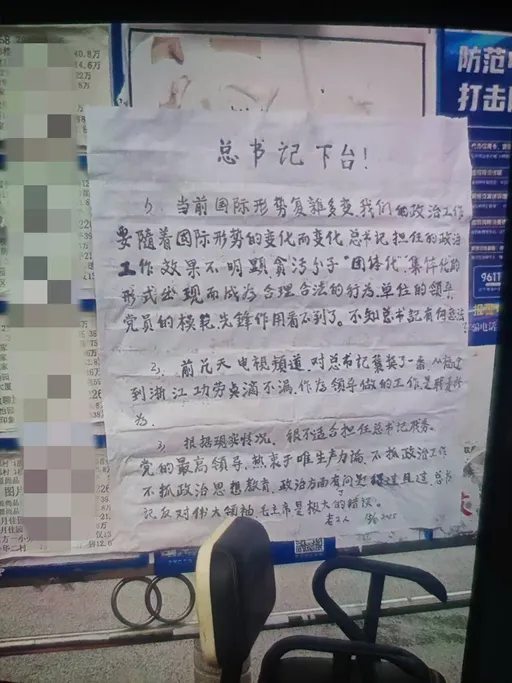 总书记下台!
1、当前国际形势复雜多变我们的政治工作
要随着国际形势的变化而变化总书记担任的政治
工作效果不明顯贪污分子"团体化"集体化的
形式出现而成为合理合法的行为.单位的领导
党员的模范先鋒作用看不到了。不知总书记有何
2、前几天电视频道对总书记 奖了一番从福建
到浙江功劳点滴不漏.作为领导做的工作是
为.
3、根据现实情况.很不适合担任总书记职务.
党的最高领导.热衷于唯生产力论.不抓政治工作
不抓政治思想教育.政治方面有问题得过且过.总书
记反对伟大领袖毛主席是极大的错误。
老工人
防范
打击
9611
40.8万
22万